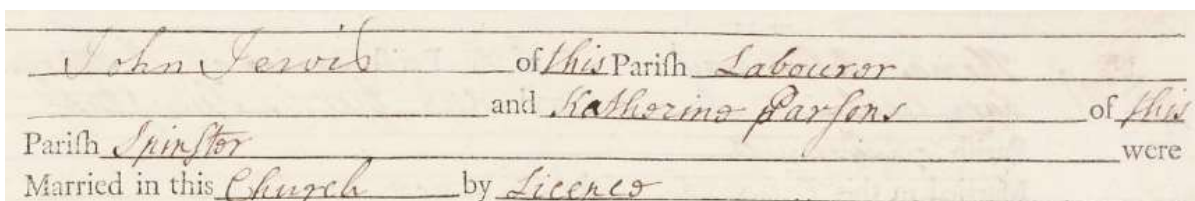 John Jervis of this Pariſh Labourer
and Katherine Parſons of this
Pariſh Spinſter were
Married in this Church by Licence